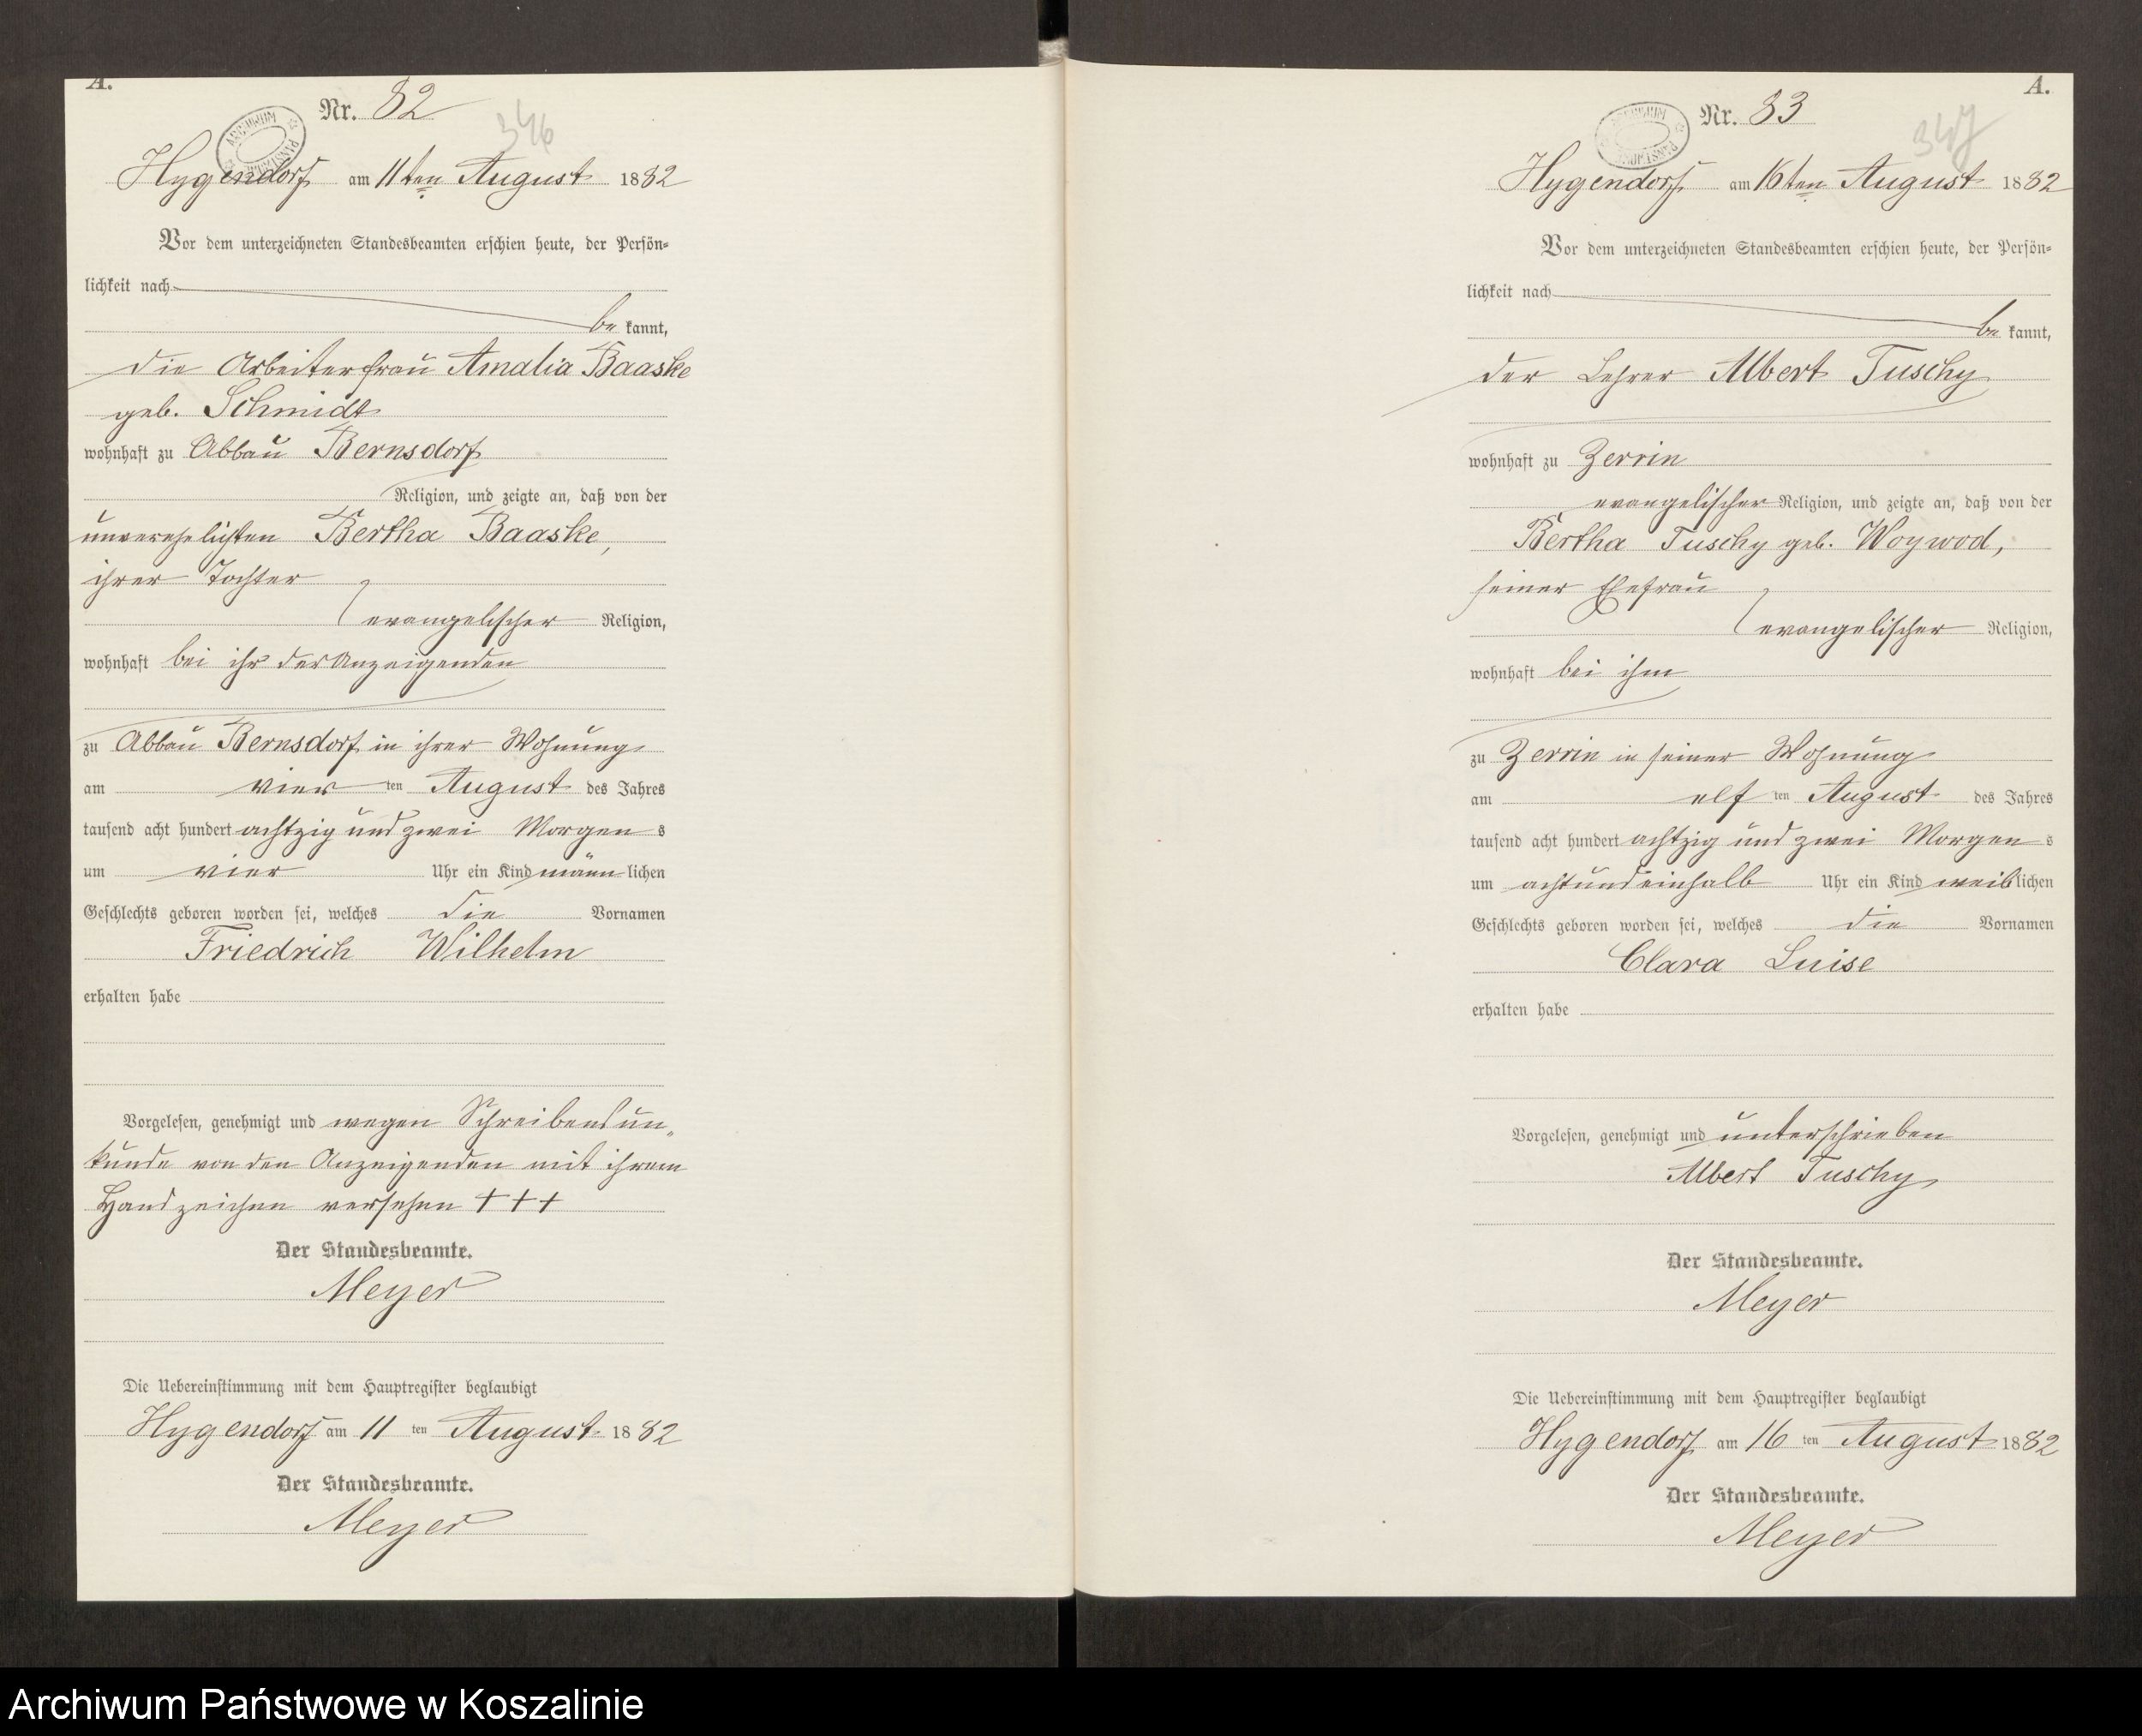 A.
Nr. 82
346
Hygendorf am 11ten August 1882
Vor dem unterzeichneten Standesbeamten erschien heute, der Persön-
lichkeit nach
be kannt,
die Arbeiterfrau Amalia Baaske
geb. Schmidt
wohnhaft zu Abbau Bernsdorf
Religion, und zeigte an, daß von der
unverehelichten Bertha Baaske,
ihrer Tochter
evangelischer Religion,
wohnhaft bei ihr der Anzeigenden
zu Abbau Bernsdorf in ihrer Wohnung
am vier ten August des Jahres
tausend acht hundert achtzig und zwei Morgen s
um vier Uhr ein Kind männ lichen
Geschlechts geboren worden sei, welches die Vornamen
Friedrich Wilhelm
erhalten habe
Vorgelesen, genehmigt und wegen Schreibensun-
kunde von den Anzeigenden mit ihrem
Handzeichen versehen +++
Der Standesbeamte.
Meyer
Die Uebereinstimmung mit dem Hauptregister beglaubigt
Hygendorf am 11 ten August 1882
Der Standesbeamte.
Meyer
A.
Nr. 83
347
Hygendorf am 16ten August 1882
Vor dem unterzeichneten Standesbeamten erschien heute, der Persön-
lichkeit nach
be kannt,
der Lehrer Albert Tuschy
wohnhaft zu Zerrin
evangelischer Religion, und zeigte an, daß von der
Bertha Tuschy geb. Woywod,
seiner Ehefrau
evangelischer Religion,
wohnhaft bei ihm
zu Zerrin in seiner Wohnung
am elf ten August des Jahres
tausend acht hundert achtzig und zwei Morgen s
um achtundeinhalb Uhr ein Kind weib lichen
Geschlechts geboren worden sei, welches die Vornamen
Clara Luise
erhalten habe
Vorgelesen, genehmigt und unterschrieben
Albert Tuschy
Der Standesbeamte.
Meyer
Die Uebereinstimmung mit dem Hauptregister beglaubigt
Hygendorf am 16 ten August 1882
Der Standesbeamte.
Meyer
Archiwum Państwowe w Koszalinie